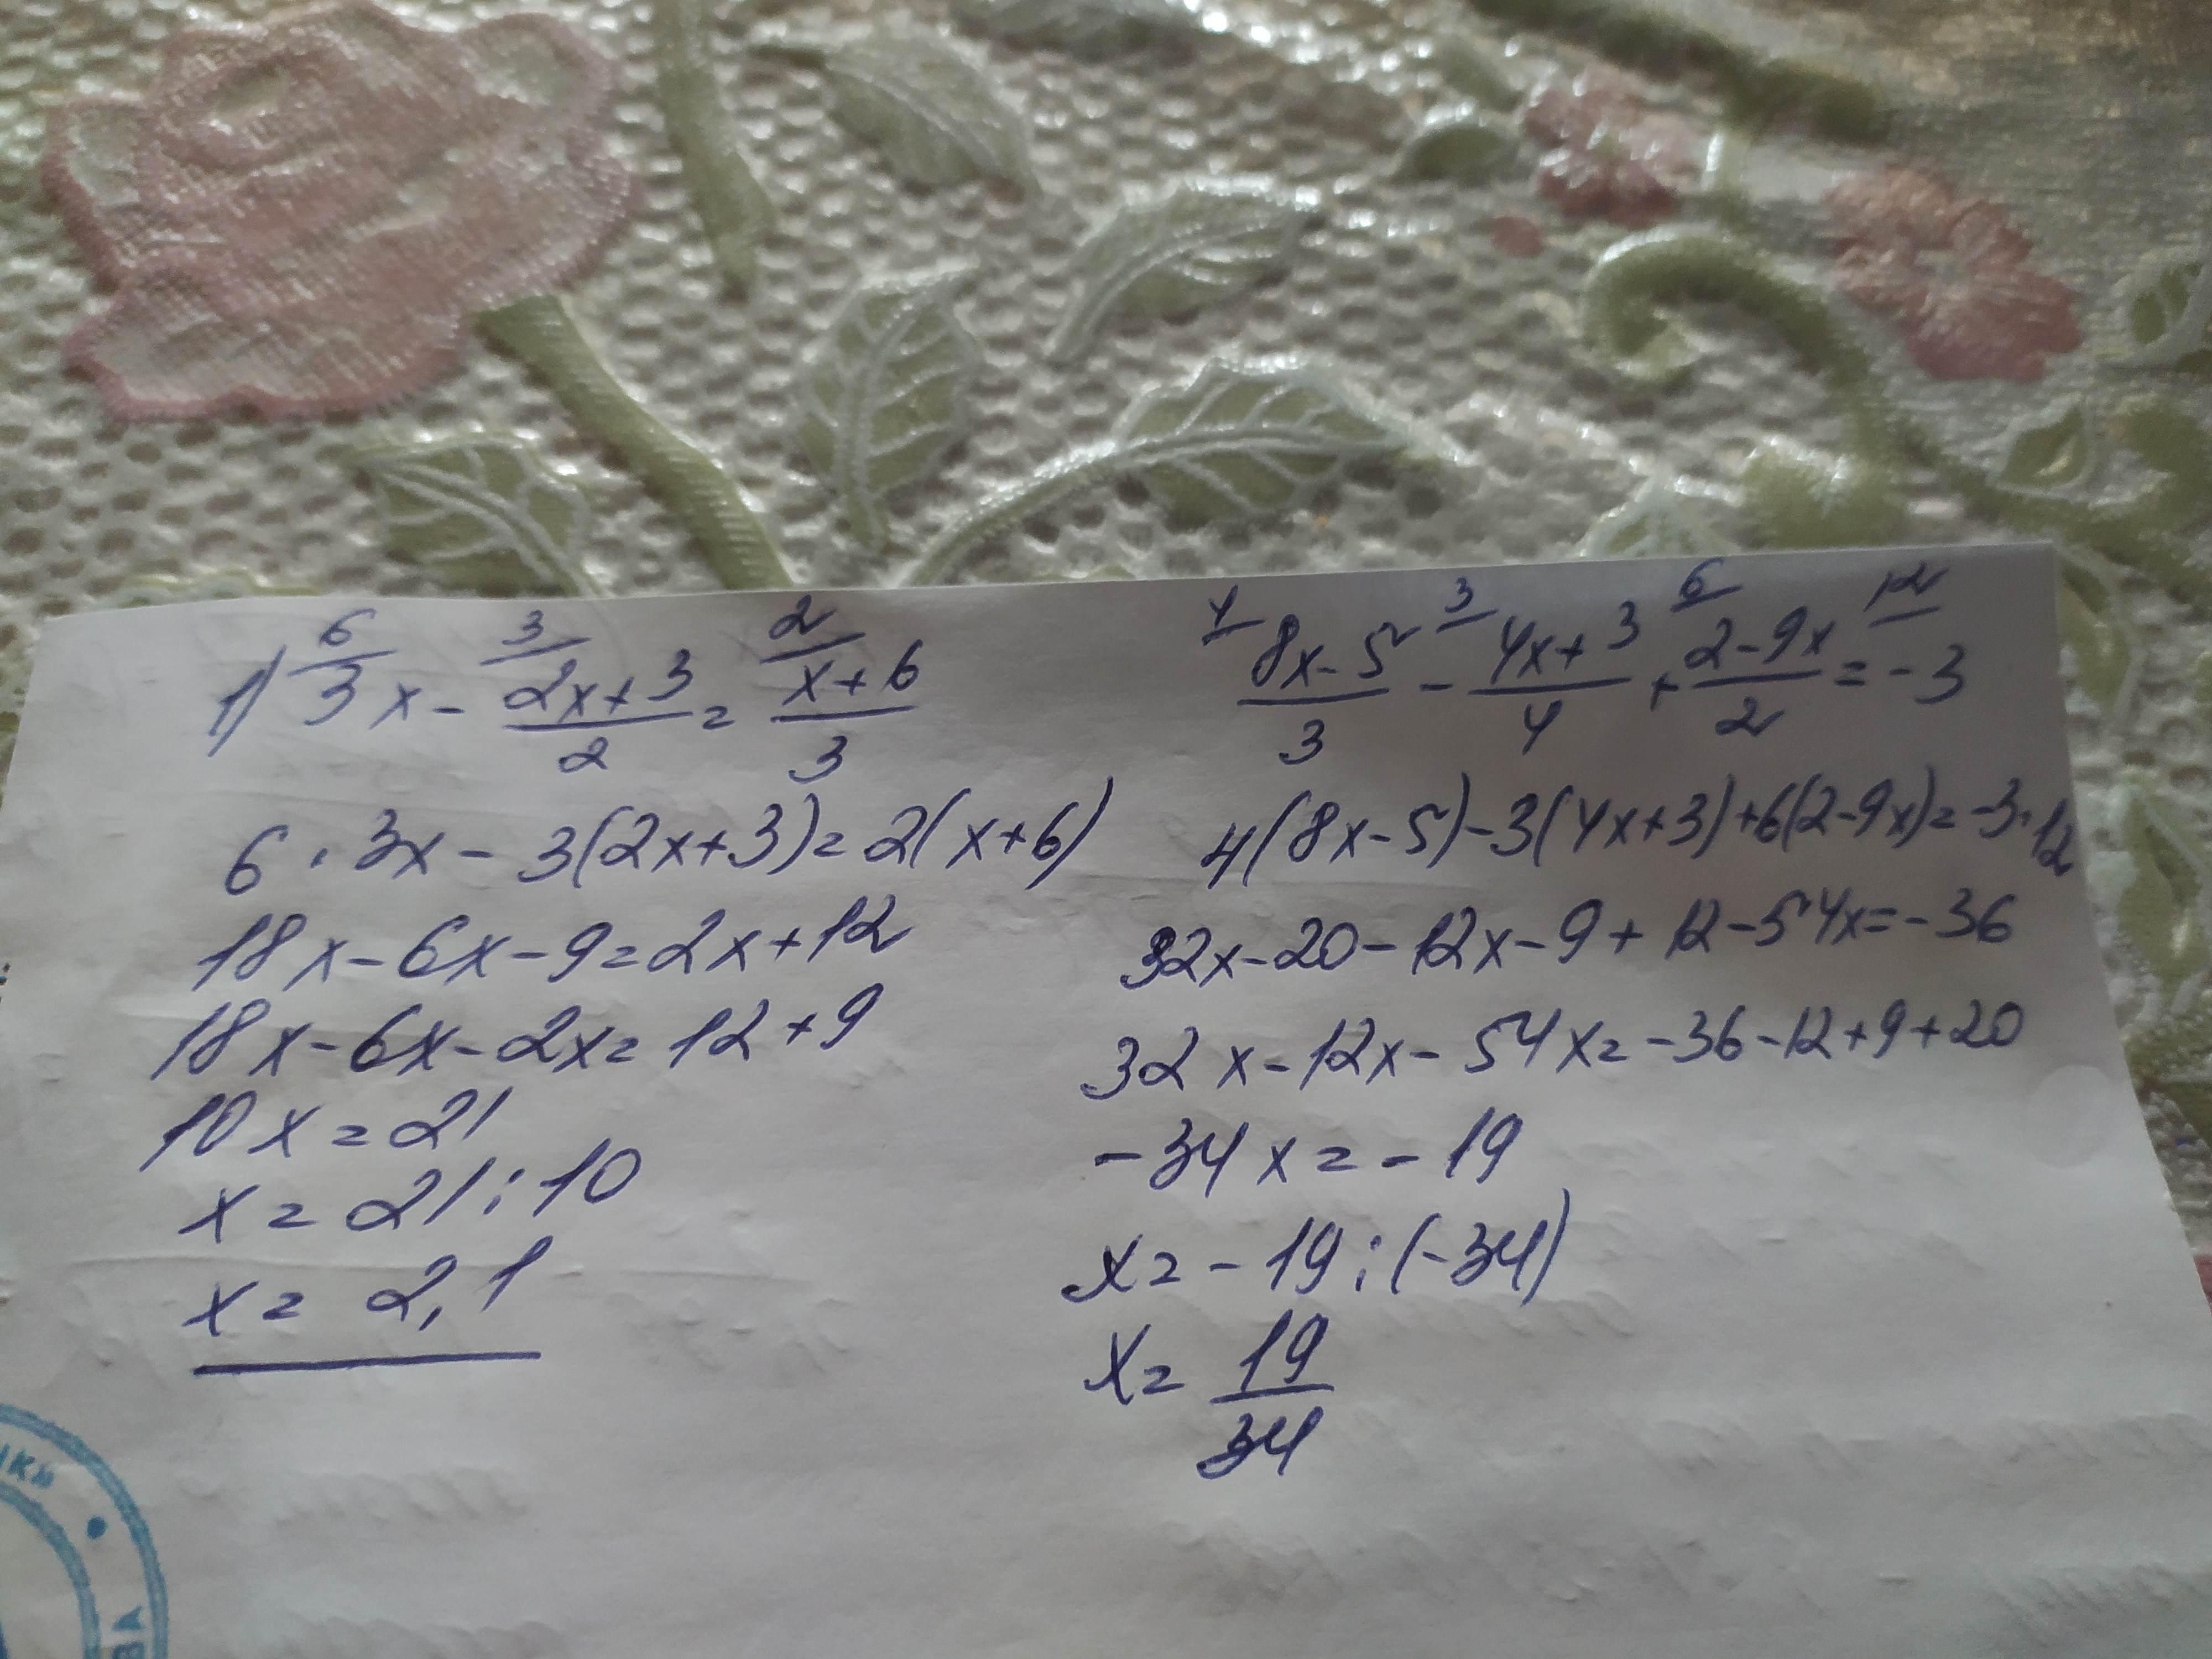 1) 6 3x - 3 2x+3/2 = 2 x+6/3
6 · 3x - 3(2x+3) = 2(x+6)
18x - 6x - 9 = 2x + 12
18x - 6x - 2x = 12 + 9
10x = 21
x = 21 : 10
x = 2,1
4 8x-5/3 - 3 4x+3/4 + 6 2-9x/2 = 12 -3
4(8x-5) - 3(4x+3) + 6(2-9x) = -3·12
32x - 20 - 12x - 9 + 12 - 54x = -36
32x - 12x - 54x = -36 - 12 + 9 + 20
-34x = -19
x = -19 : (-34)
x = 19/34